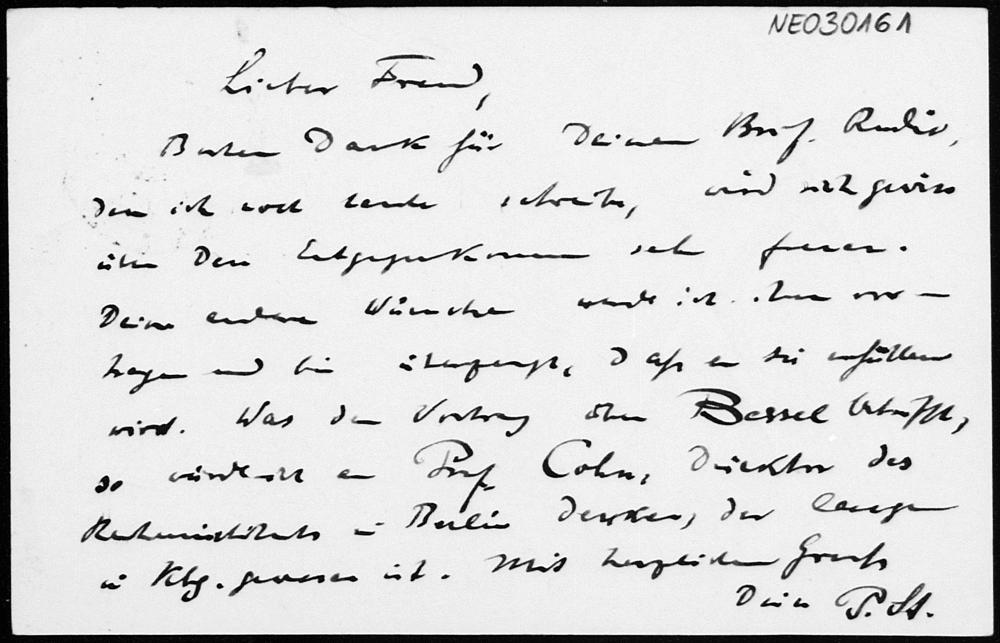 NE030161
Lieber Freund,
Besten Dank für Deinen Brief. Rudio,
dem ich noch heute schreibe, wird sich gewiss
über Dein Entgegenkommen sehr freuen.
Deine anderen Wünsche werde ich ihm vor-
tragen und bin überzeugt, daß er sie erfüllen
wird. Was den Vortrag über Bessel betrifft,
so würde ich an Prof. Cohn, Direktor des
Recheninstituts in Berlin denken, der lange
in Kbg. gewesen ist. Mit herzlichem Gruß
Dein P. St.